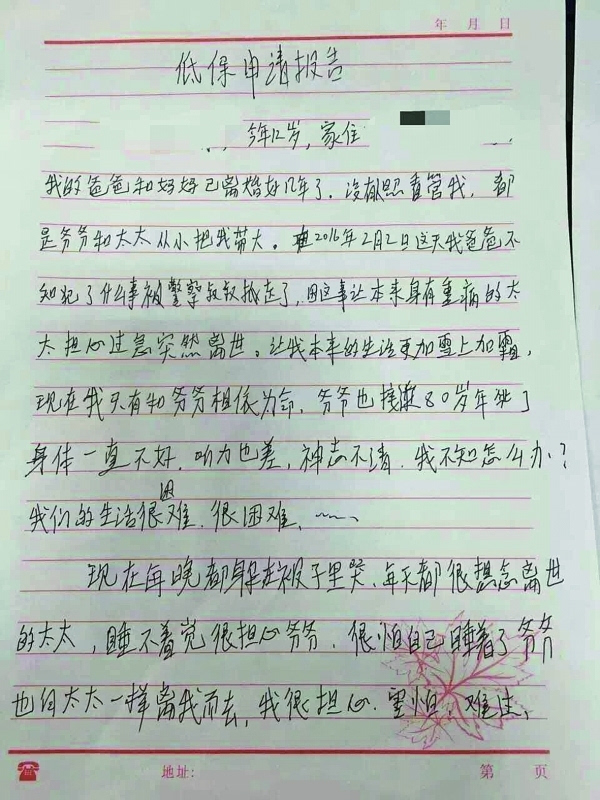 年 月 日
低保申请报告
今年12岁，家住
我的爸爸和妈妈已离婚好几年了．没有照看管我，都
是爷爷和太太从小把我带大。在2016年2月2日这天我爸爸不
知犯了什么事被警察叔叔抓走了，因这事让本来身有重病的太
太担心过急突然离世。让我本来的生活更加雪上加霜，
现在我只有和爷爷相依为命．爷爷也接近80岁年纪了
身体一直不好．听力也差，神志不清．我不知怎么办？
我们的生活很困难．很困难．
现在每晚都躲在被子里哭．每天都很想念离世
的太太，睡不着觉很担心爷爷．很怕自己睡着了爷爷
也向太太一样离我而去，我很担心．害怕，难过，
地址： 第 页